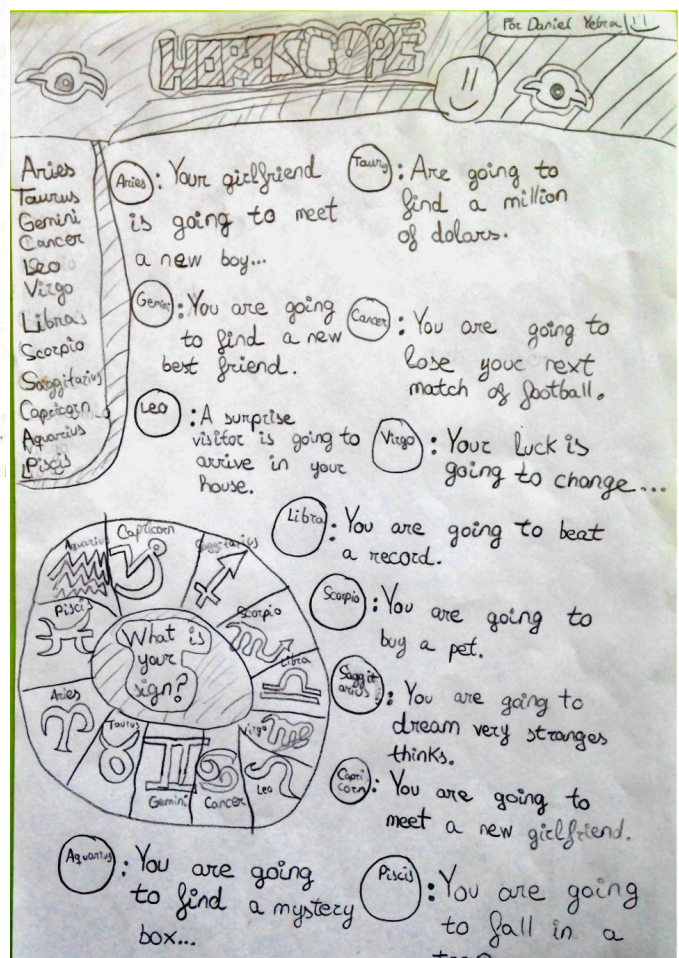 Por Daniel Yebra
HORASCOPE
Aries
Taurus
Gemini
Cancer
Leo
Virgo
Libras
Scorpio
Saggitarius
Capricorn
Aquarius
Piscis
Aries: Your girlfriend
is going to meet
a new boy...
Taurus: Are going to
find a million
of dolars.
Gemini: You are going
to find a new
best friend.
Cancer: You are going to
lose your next
match of football.
Leo: A surprise
visitor is going to
arrive in your
house.
Virgo: Your luck is
going to change...
Libra: You are going to beat
a record.
Scorpio: You are going to
buy a pet.
Saggit
arius: You are going to
dream very stranges
thinks.
Capri
corn: You are going to
meet a new girlfriend.
Aquarius
Capricorn
Saggitarius
Scorpio
Libra
Virgo
Leo
Cancer
Gemini
Taurus
Aries
Piscis
What is
your
sign?
Aquarius: You are going
to find a mystery
box...
Piscis: You are going
to fall in a